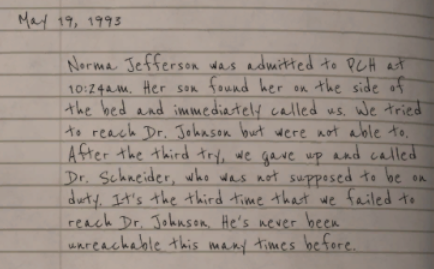 May 19, 1993
Norma Jefferson was admitted to PCH at
10:24am. Her son found her on the side of
the bed and immediately called us. We tried
to reach Dr. Johnson but were not able to.
After the third try, we gave up and called
Dr. Schneider, who was not supposed to be on
duty. It's the third time that we failed to
reach Dr. Johnson. He's never been
unreachable this many times before.